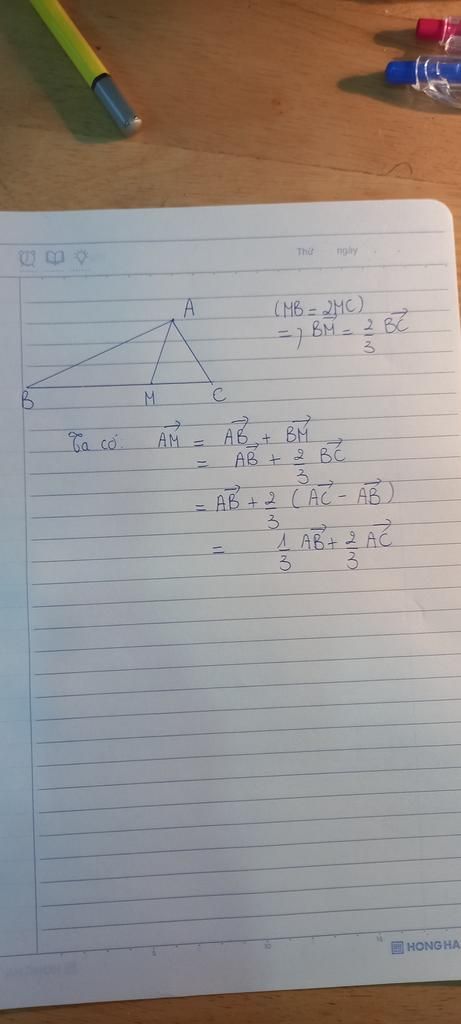 Thứ ngày
A
(MB = 2MC)
=> BM→ = 2/3 BC→
B M C
Ta có: AM→ = AB→ + BM→
= AB→ + 2/3 BC→
= AB→ + 2/3 (AC→ - AB→)
= 1/3 AB→ + 2/3 AC→
5 10 15
HONG HA